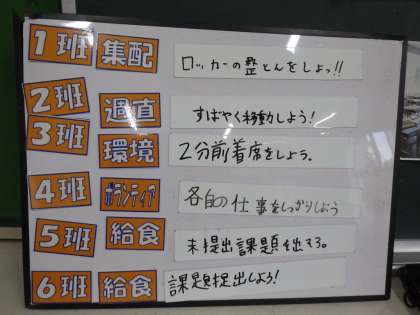 1班 集配 ロッカーの整とんをしよう!!
2班 週直 すばやく移動しよう!
3班 環境 2分前着席をしよう。
4班 ボランティア 各自の仕事をしっかりしよう
5班 給食 未提出課題を出そう。
6班 給食 課題提出しよう!